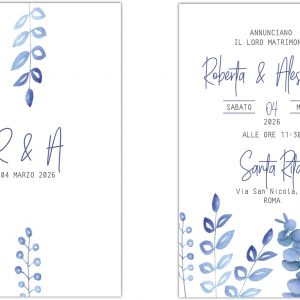 R & A
04 MARZO 2026
ANNUNCIANO
IL LORO MATRIMON
Roberta & Ales
SABATO 04 M
2026
ALLE ORE 11:30
Santa Rita
Via San Nicola,
ROMA